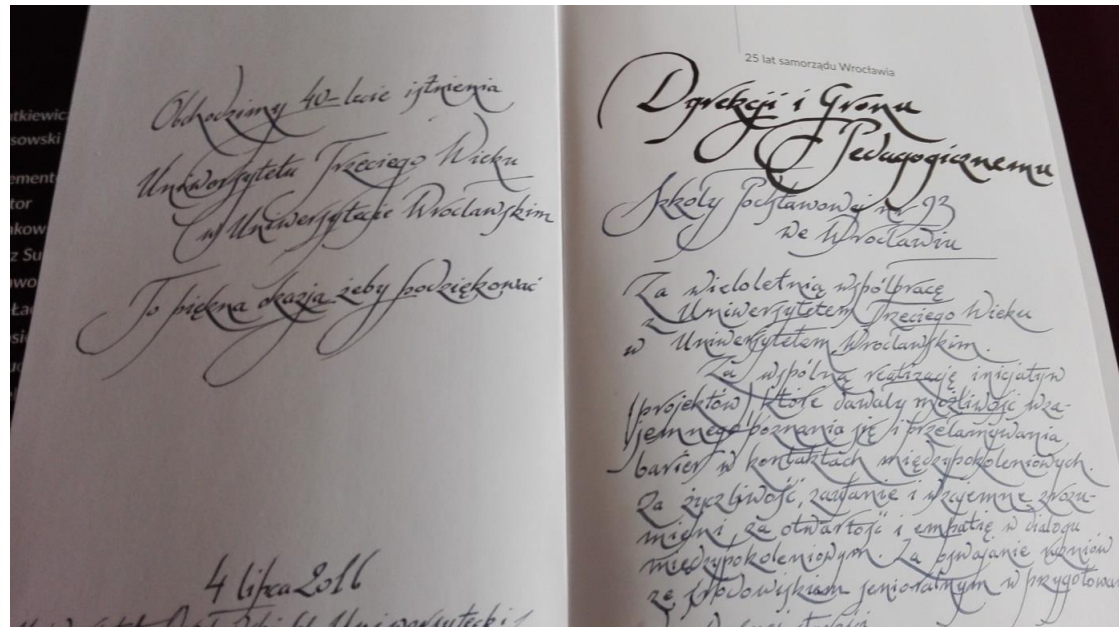 Obchodzimy 40-lecie istnienia
Uniwersytetu Trzeciego Wieku
w Uniwersytecie Wrocławskim
To piękna okazja żeby podziękować
4 lipca 2016
25 lat samorządu Wrocławia
Dyrekcji i Gronu
Pedagogicznemu
Szkoły Podstawowej nr 93
we Wrocławiu
Za wieloletnią współpracę
z Uniwersytetem Trzeciego Wieku
w Uniwersytetem Wrocławskim.
Za wspólną realizację inicjatyw
(projektów) które dawały możliwość wza-
jemnego poznania się i przełamywania,
barier w kontaktach międzypokoleniowych.
Za życzliwość, zaufanie i wzajemne zrozu-
mieni, za otwartość i empatię w dialogu
międzypokoleniowym. Za oswajanie uczniów
ze środowiskiem senioralnym w